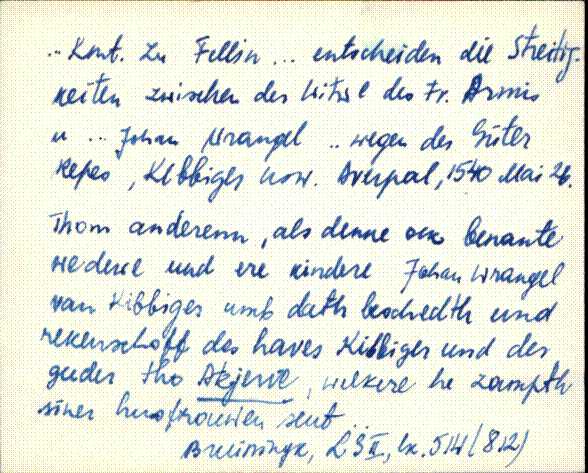 .. Komt. zu Fellin ... entscheiden die Streitig-
keiten zwischen der Witwe des Fr. Armis
u ... Johan Wrangel .. wegen der Güter
Repes, Kibbiger usw. Overpal, 1540 Mai 26.
Thom anderenn, als denne ock benante
wedewe und ere kindere Johan Wrangel
van Kibbiger umb dath beschedth und
rekenschoff des haves Kibbiger und der
guder tho Akjerve, welkere he zampth
siner husfrouwen sent ...
Bruiningk, LG II, lk. 514 (812)